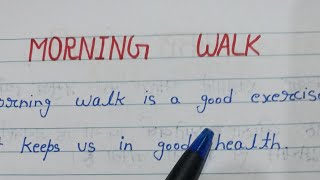 MORNING WALK
orning walk is a good exercise
t keeps us in good health.